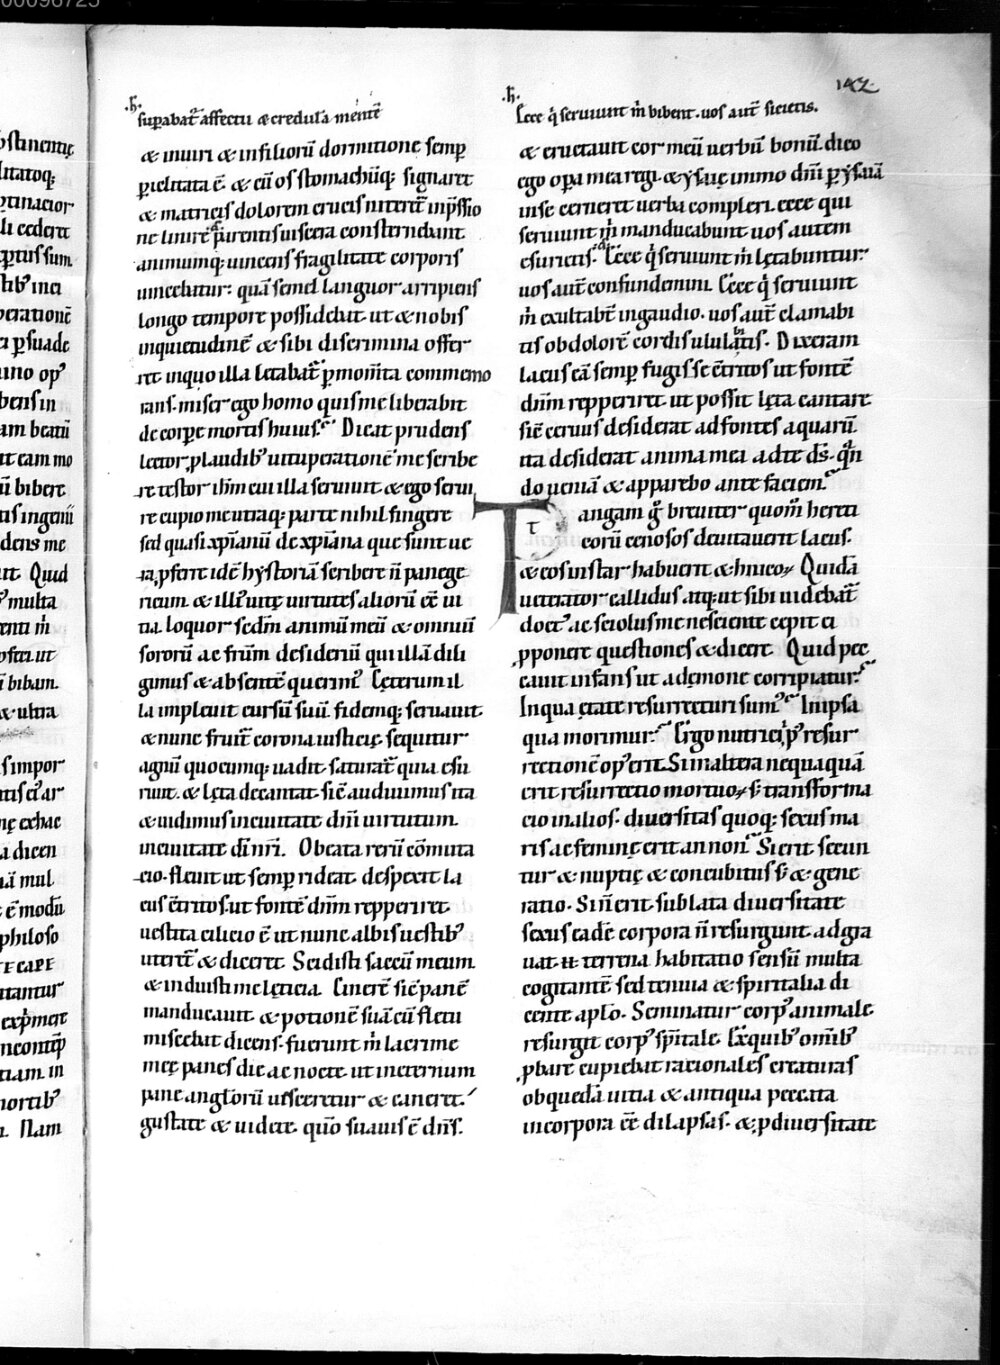 00098725
142
.h. sup̄abat᷑ affectu & credula mente᷑
& in uiri & in filioru᷑ dormitione semp̄
p̄iclitata ē. & cū os stomachūq; signaret
& matricis dolorem crucis niteret᷑ inp̄ssio
ne linire᷑. parentis uiscera consternebant᷑
animumq; uincens fragilitate corporis
uincebatur: quā semel languor arripiens
longo tempore possidebat. ut & nobis
inquietudinē & sibi discrimina offer
ret. inquo illa lętabat᷑ p̄ mom̄ta commemo
rans. miser ego homo quis me liberabit
de corpe mortis huius. Dicat prudens
lector, p̱ laudib' uituperationē me scribe
re. testor ih̄m cui illa seruiuit. & ego serui
re cupio me utraq; parte nihil fingere
sed quasi xp̄ianū de xp̄iana que sunt ue
ra, p̱ferre. idē hystoriā scribere n̄ panegi
ricum. & illi' uitę uirtutes alioru᷑ ēē ui
tia. loquor sedm̄ animū meū & omniū
sororū ac fr̄m desideriū qui illā dili
gimus & absentē querim'. Cęterum il
la impleuit cursū suū. fidemq; seruauit.
& nunc fruit᷑ corona iusticię. sequitur
agnū quocumq; uadit. saturat᷑ quia esu
riuit. & lęta decantat. sic̄ audiuimus ita
& uidimus in ciuitate dn̄i uirtutum.
in ciuitate di n̄ri. O beata rerū cōmuta
cio. fleuit ut semp̄ rideat. despexit la
cus c̄tritos. ut fontē dn̄m repperiret.
uestita cilicio ē. ut nunc albis uestib'
uteret᷑ & diceret. Scidisti saccū meum
& induisti me lęticia. Cinerē sic̄ panē
manducauit. & potionē suā cū fletu
miscebat dicens. fuerunt m̄ lacrime
meę panes die ac nocte. ut ineternum
pane angl̄orū uesceretur & caneret.
gustate & uidete. quō suauis ē dn̄s.
.h. Ecce q̄ seruiunt m̄ bibent. uos aut᷑ sicietis.
& eructauit cor meū uerbū bonū. dico
ego opera mea regi. & ysaię immo dn̄i p̄ ysaiā
in se cerneret uerba compleri. ecce qui
seruiunt m̄ manducabunt. uos autem
esurietis. Ecce q̄ seruiunt m̄ lętabuntur.
uos aut᷑ confundemini. Ecce q̄ seruiunt
m̄ exultabt᷑ in gaudio. uos aut᷑ clamabi
tis ob dolorē cordis ululabitis. Dixeram
lacus eā semp̄ fugisse c̄tritos ut fontē
dn̄m repperiret. ut possit lęta cantare
sic̄ ceruus desiderat ad fontes aquarū
ita desiderat anima mea ad te d̄s. qn̄
do ueniā & apparebo ante faciem.
T t angam g̊ breuiter quom̄ hereti
corū cenosos deuitauerit lacus.
& eos instar habuerit ethnicoꝝ. Quidā
ueterator callidus atq; ut sibi uidebat᷑
doct' ac sciolus me nesciente cepit ei
p̱ponere questiones & dicere. Quid pec
cauit infans ut a demone corripiatur.
In qua ętate resurrecturi sum'. In ipsa
qua morimur. Ergo nutricib' p' resur
rectionē op' erit. Sin altera nequaquā
erit resurrectio mortuoꝝ. s; transforma
cio in alios. diuersitas quoq; sexus ma
ris ac feminę erit an non. Si erit secun
tur & nuptię & concubitus s; & gene
ratio. Si n̄ erit. sublata diuersitate
sexus eadē corpora n̄ resurgunt. adgra
uat. n̄. terrena habitatio sensū multa
cogitantē sed tenuia & spiritalia di
cente apl̄o. Seminatur corp' animale.
resurgit corp' sp̄itale. Ex quib' omīb'
p̱bare cupiebat racionales creaturas
ob quedā uitia & antiqua peccata
in corpora ēē dilapsas. & p̱ diuersitate